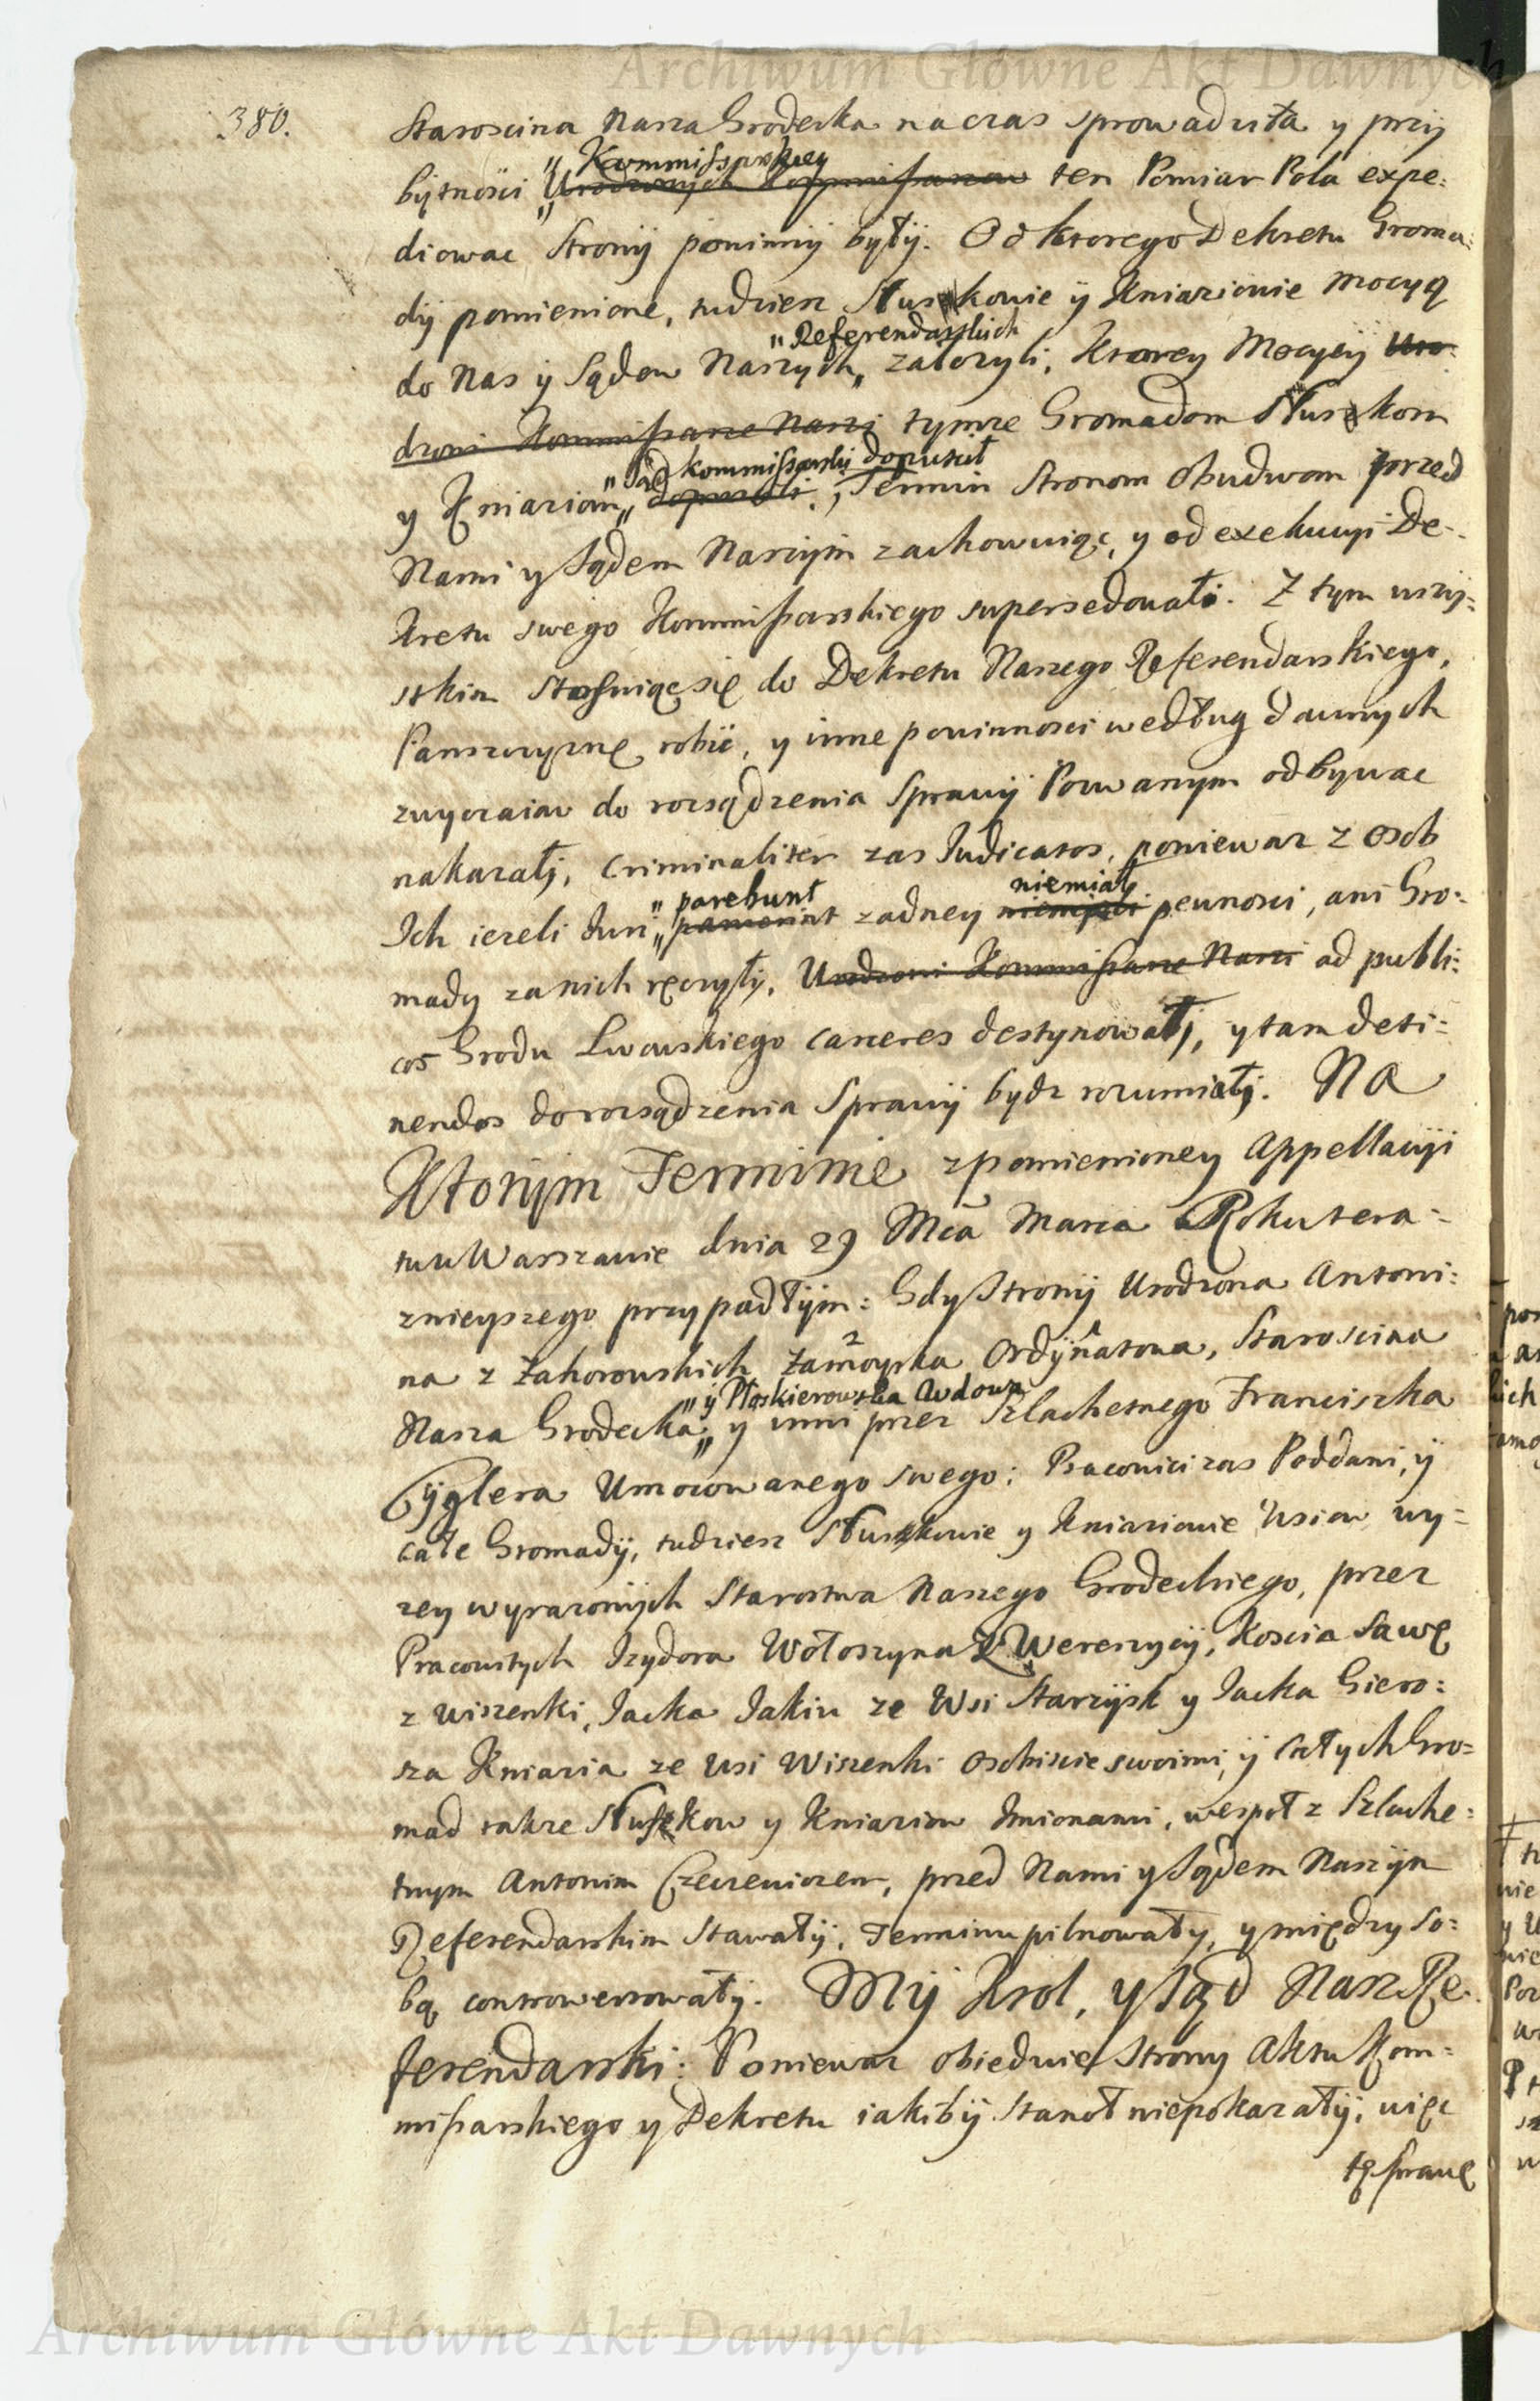 Archiwum Główne Akt Dawnych
380.
Starościna Nasza Grodecka na czas sprowadziła y przy
„Kommissarskiey
bytności „Urodzonych Kommissarzow ten Pomiar Pola expe=
diowac Strony powinny były. Od ktorego Dekretu Groma=
dy pomienione, tudziesz Służkowie y Kniaziowie mocyą
„Referendarskich
do Nas y Sądow Naszych„ założyli, Ktorey Mocyey Uro=
dzoni Kommissarze Nasi tymże Gromadom Służkom
„Sąd kommissarski dopuścił
y Kniaziom„ dopuścili, Termin Stronom Obudwom przed
Nami y Sądem Naszym zachowuiąc, y od exekucyi De-
kretu swego Kommissarskiego supersedowali. Z tym wszy=
stkim Stosuiąc się do Dekretu Naszego Referendarskiego,
Panszczyznę robić, y inne powinności według dawnych
zwyczaiow do rozsądzenia Sprawy Pozwanym odbywac
nakazały, Criminaliter zas Iudicatos, poniewaz z Osob
„parebunt niemiał
Ich iezeli Iuri „ zadney niemieli pewności, ani Gro=
mady za nich ręczyły, Urodzoni Kommissarze Nasi ad publi=
cos Grodu Lwowskiego carceres destynowały, y tam deti=
nendos do rozsądzenia Sprawy bydz rozumiały. Na
Ktorym Terminie z pomienioney Appellacyi
tu w Warszawie dnia 29 Mca Marca Roku tera=
znieyszego przypadłym: Gdy Strony Urodzona Antoni=
na z Zahorowskich Zamoyska Ordynatowa, Starościna
„y Płoskierowska Wdowa
Nasza Grodecka„ y inni przez Szlachetnego Franciszka
Cyglera Umocowanego swego: Pracowici zas Poddani, y
całe Gromady, tudziesz Służkowie y Kniaziowie Wsiow wy=
zey wyrazonych Starostwa Naszego Grodeckiego, przez
Pracowitych Izydora Wołoszyna Z Wereszycy, Kościa Sawę
z Wiszenki, Jacka Jakiw ze Wsi Starzysk y Jacka Giero=
sza Kniazia ze Wsi Wiszenki Osobiście swoimi, y Całych Gro=
mad takze Służkow y Kniaziow Imionami, wespoł z Szlache=
tnym Antonim Czeczewiczem, przed Nami y Sądem Naszym
Referendarskim Stawały, Terminu pilnowały, y między so=
bą controwersowały. My Krol, y Sąd Nasz Re=
ferendarski: Poniewaz obiedwie Strony Aktu Kom=
missarskiego y Dekretu iakiby Stanoł niepokazały, więc
tę sprawę
Archiwum Główne Akt Dawnych